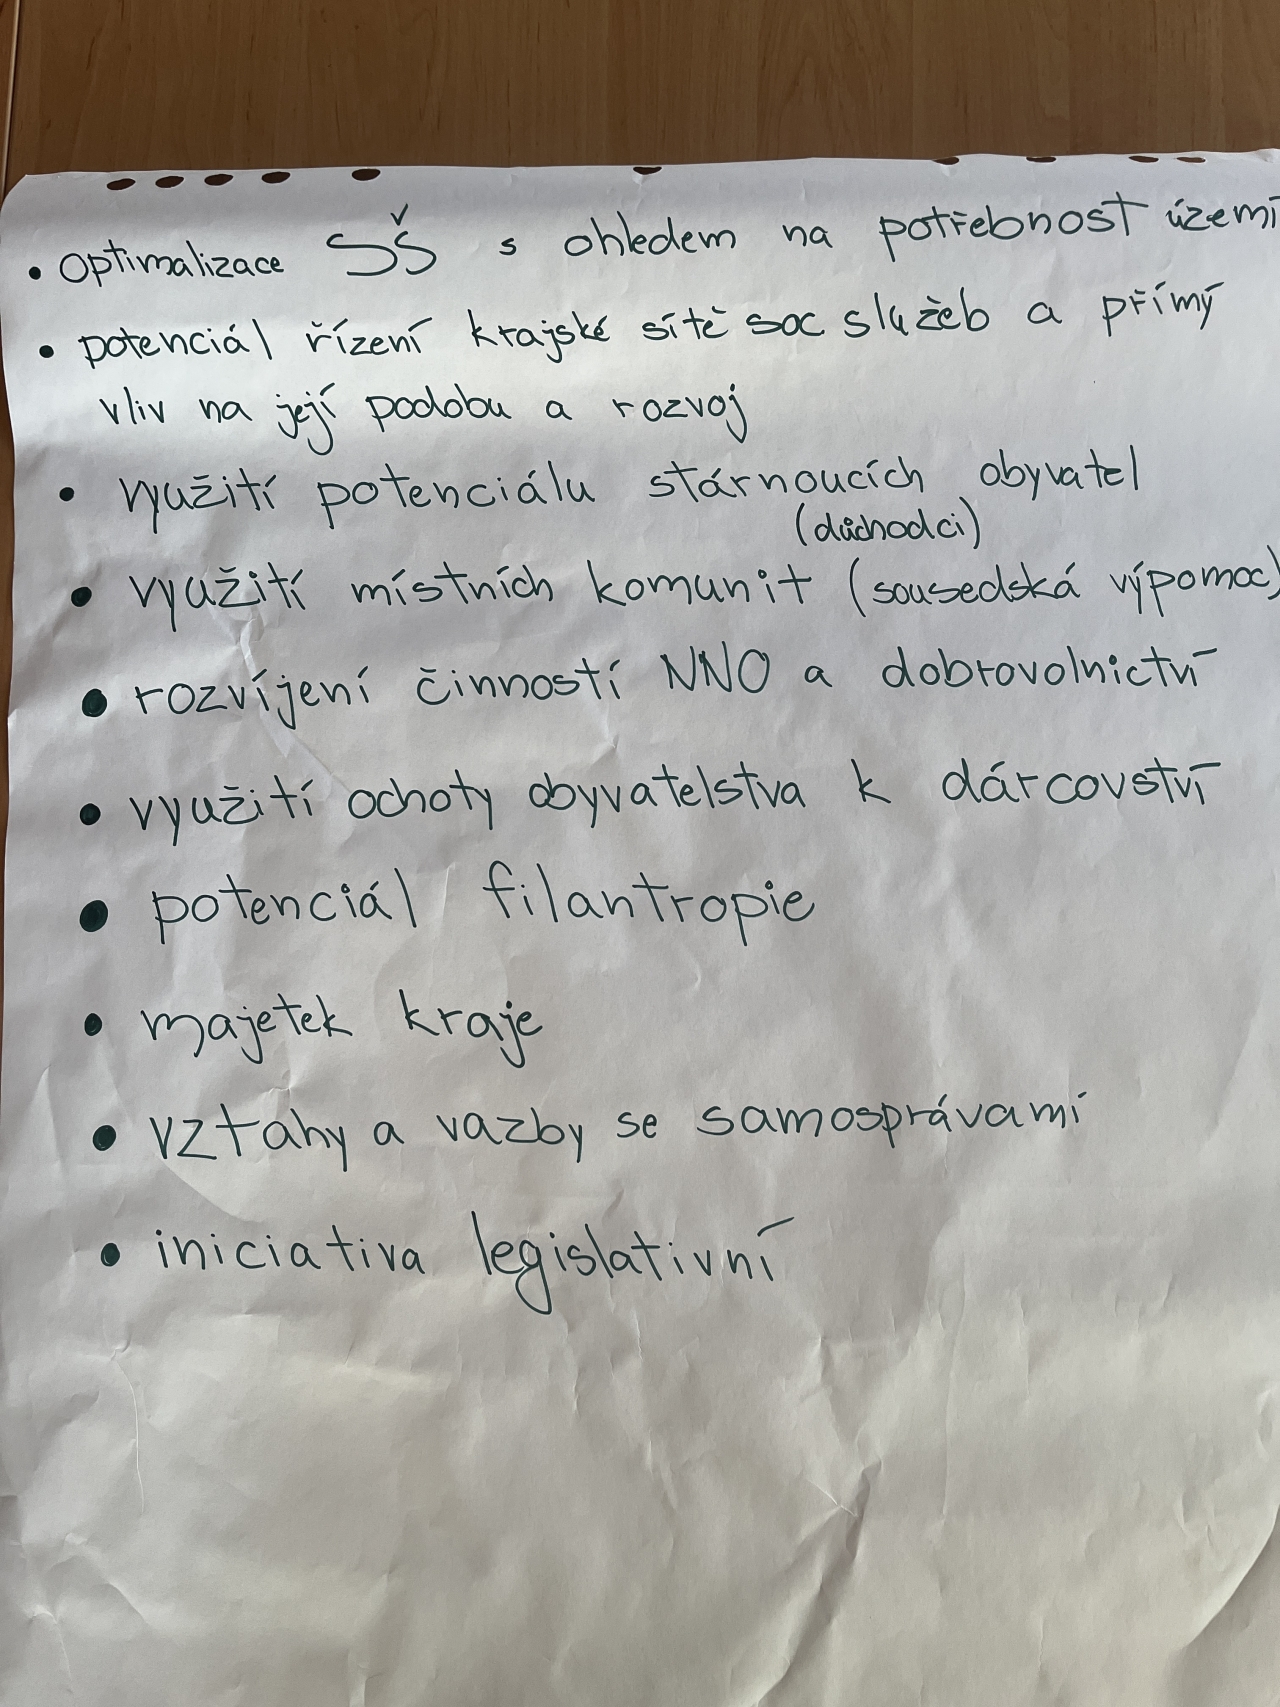 • optimalizace SŠ s ohledem na potřebnost území
• potenciál řízení krajské sítě soc služeb a přímý
vliv na její podobu a rozvoj
• využití potenciálu stárnoucích obyvatel
(důchodci)
• využití místních komunit (sousedská výpomoc)
• rozvíjení činností NNO a dobrovolnictví
• využití ochoty obyvatelstva k dárcovství
• potenciál filantropie
• majetek kraje
• vztahy a vazby se samosprávami
• iniciativa legislativní